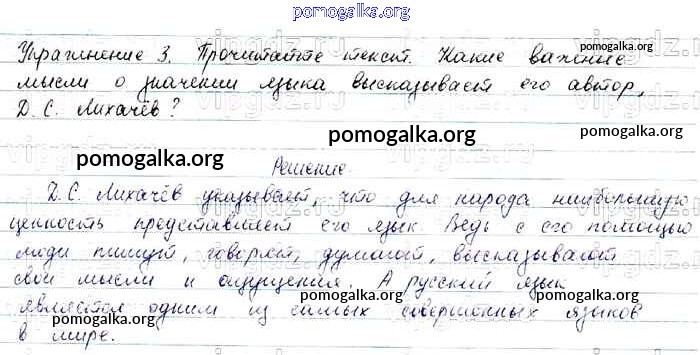 pomogalka.org
Упражнение 3. Прочитайте текст. Какие важные
pomogalka.org
мысли о значении языка высказывает его автор,
Д. С. Лихачёв?
pomogalka.org
pomogalka.org
Решение.
Д.С. Лихачёв указывает, что для народа наибольшую
ценность представляет его язык. Ведь с его помощью
люди пишут, говорят, думают, высказывают
свои мысли и ощущения. А русский язык
pomogalka.org
pomogalka.org
pomogalka.org
является одним из самых совершенных языков
в мире.